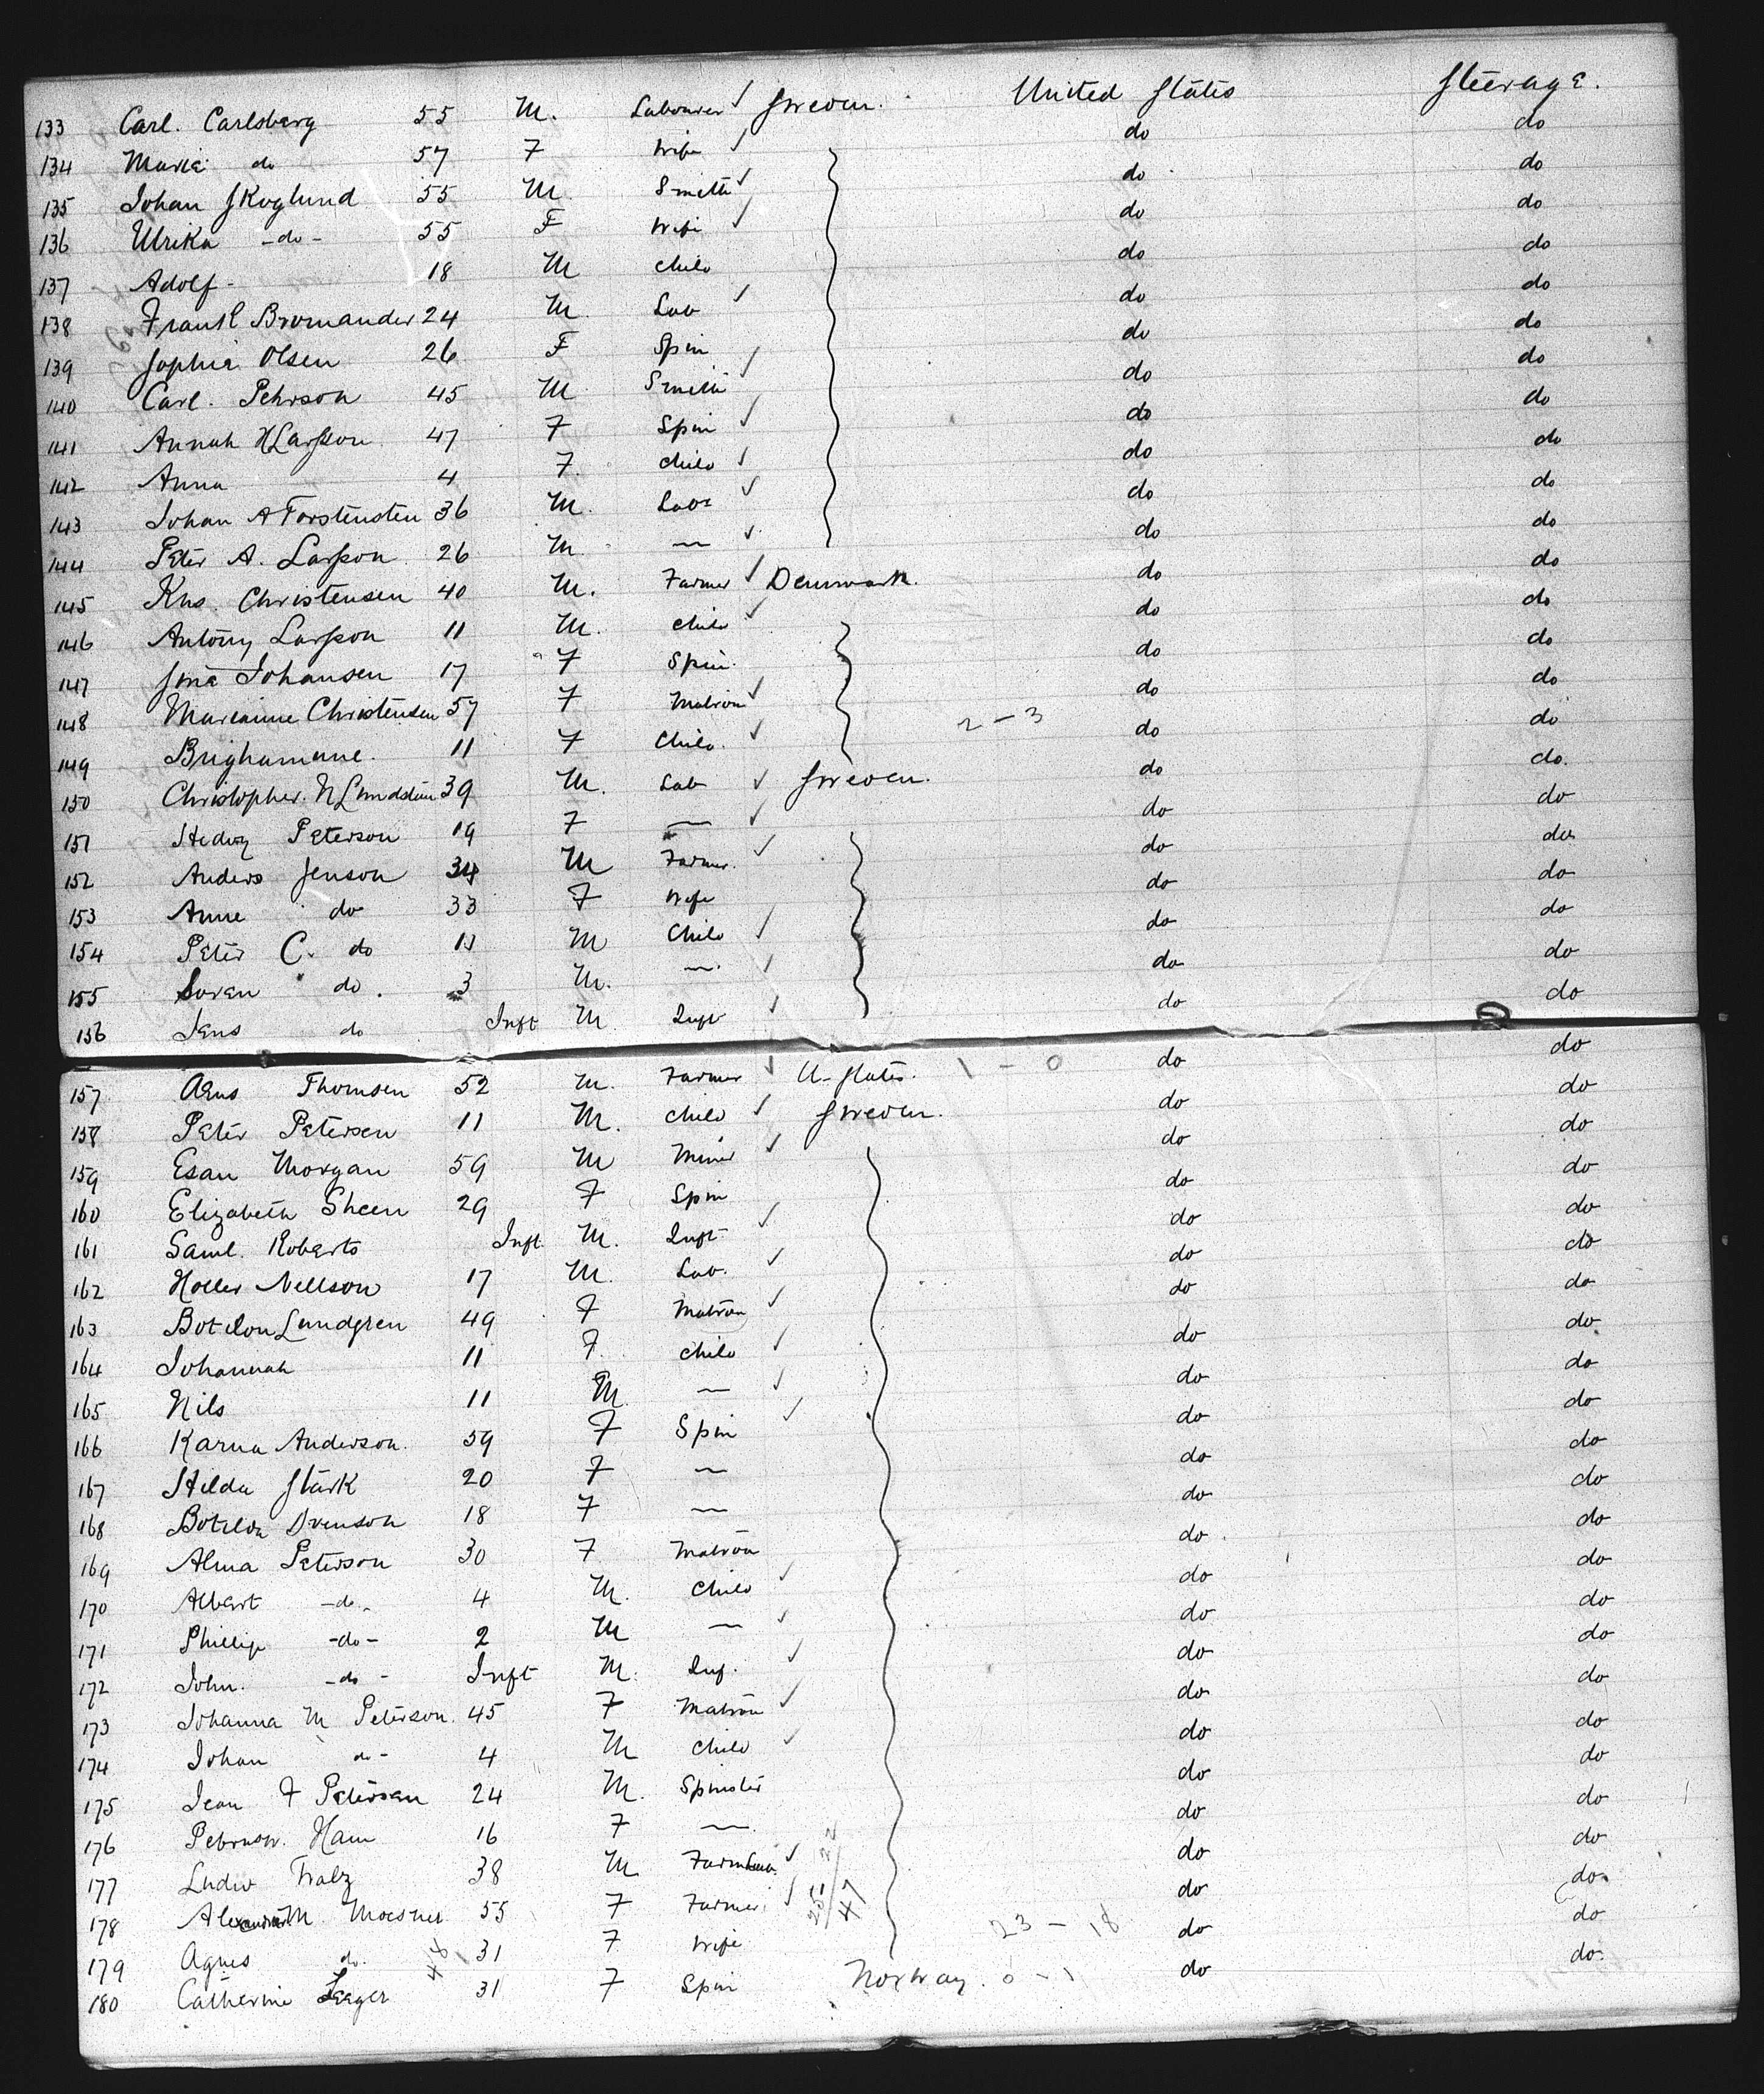 133 Carl. Carlsberg 55 M. Labourer ✓ Sweden. United States Steerage.
134 Maria do 57 F Wife ✓ do do
135 Johan Skoglund 55 M. Smith ✓ do do
136 Ulrika -do- 55 F Wife ✓ do do
137 Adolf - 18 M Child do do
138 Bromander 24 M. Lab ✓ do do
139 Sophia Olsen 26 F Spin do do
140 Carl. Pehrson 45 M Smith ✓ do do
141 Annah H Larsson 47 F Spin ✓ do do
142 Anna 4 F. Child ✓ do do
143 Johan A Torstensten 36 M. Labr ✓ do do
144 Peter A. Larsson 26 M. — ✓ do do
145 Kns. Christensen 40 M. Farmer ✓ Denmark. do do
146 Antony Larsson 11 M. Child ✓ do do
147 Sina Johansen 17 F Spin. do do
148 Marianne Christensen 57 F Matron ✓ 2 - 3 do do
149 Brighamune. 11 F Child. ✓ do do
150 Christopher. N 39 M. Lab ✓ Sweden. do do.
151 Hedvig Peterson 19 F — ✓ do do
152 Anders Jenson 34 M Farmer. ✓ do do
153 Anne do 33 F Wife do do
154 Peter C. do 11 M Child ✓ do do
155 Soren do. 3 M. —. ✓ do do
156 Jens do Inft M. Inft ✓ do do
157 Thomsen 52 M. Farmer ✓ U. States. 1 - 0 do do
158 Peter Petersen 11 M. Child ✓ Sweden. do do
159 Esau Morgan 59 M Miner ✓ do do
160 Elizabeth Sheen 29 F Spin do do
161 Saml. Roberts Inft. M. Inft ✓ do do
162 Holler Nellson 17 M. Lab. ✓ do do
163 Lundgren 49 F Matron ✓ do do
164 Johannah 11 F. Child ✓ do do
165 Nils 11 M. — ✓ do do
166 Karna Anderson. 59 F Spin ✓ do do
167 Hilda Stark 20 F — do do
168 Botilda Svenson 18 F — do do
169 Alma Peterson 30 F Matron do do
170 Albert -do- 4 M. Child ✓ do do
171 Phillip -do- 2 M — ✓ do do
172 John. -do- Inft M. Inf. ✓ do do
173 Johanna M Peterson. 45 F Matron ✓ do do
174 Johan do- 4 M Child ✓ do do
175 Jean F Peterson 24 M. Spinster do do
176 Ham 16 F —. do do
177 Ludw Tralz 38 M ✓ do do
178 M. Moesner 55 F Farmer. ✓ 25 22 47 do do
179 Agnes do. 48 31 F. Wife 23 - 18 do do
180 Catherine 31 F Spin Norway. 0 - 1 do do.